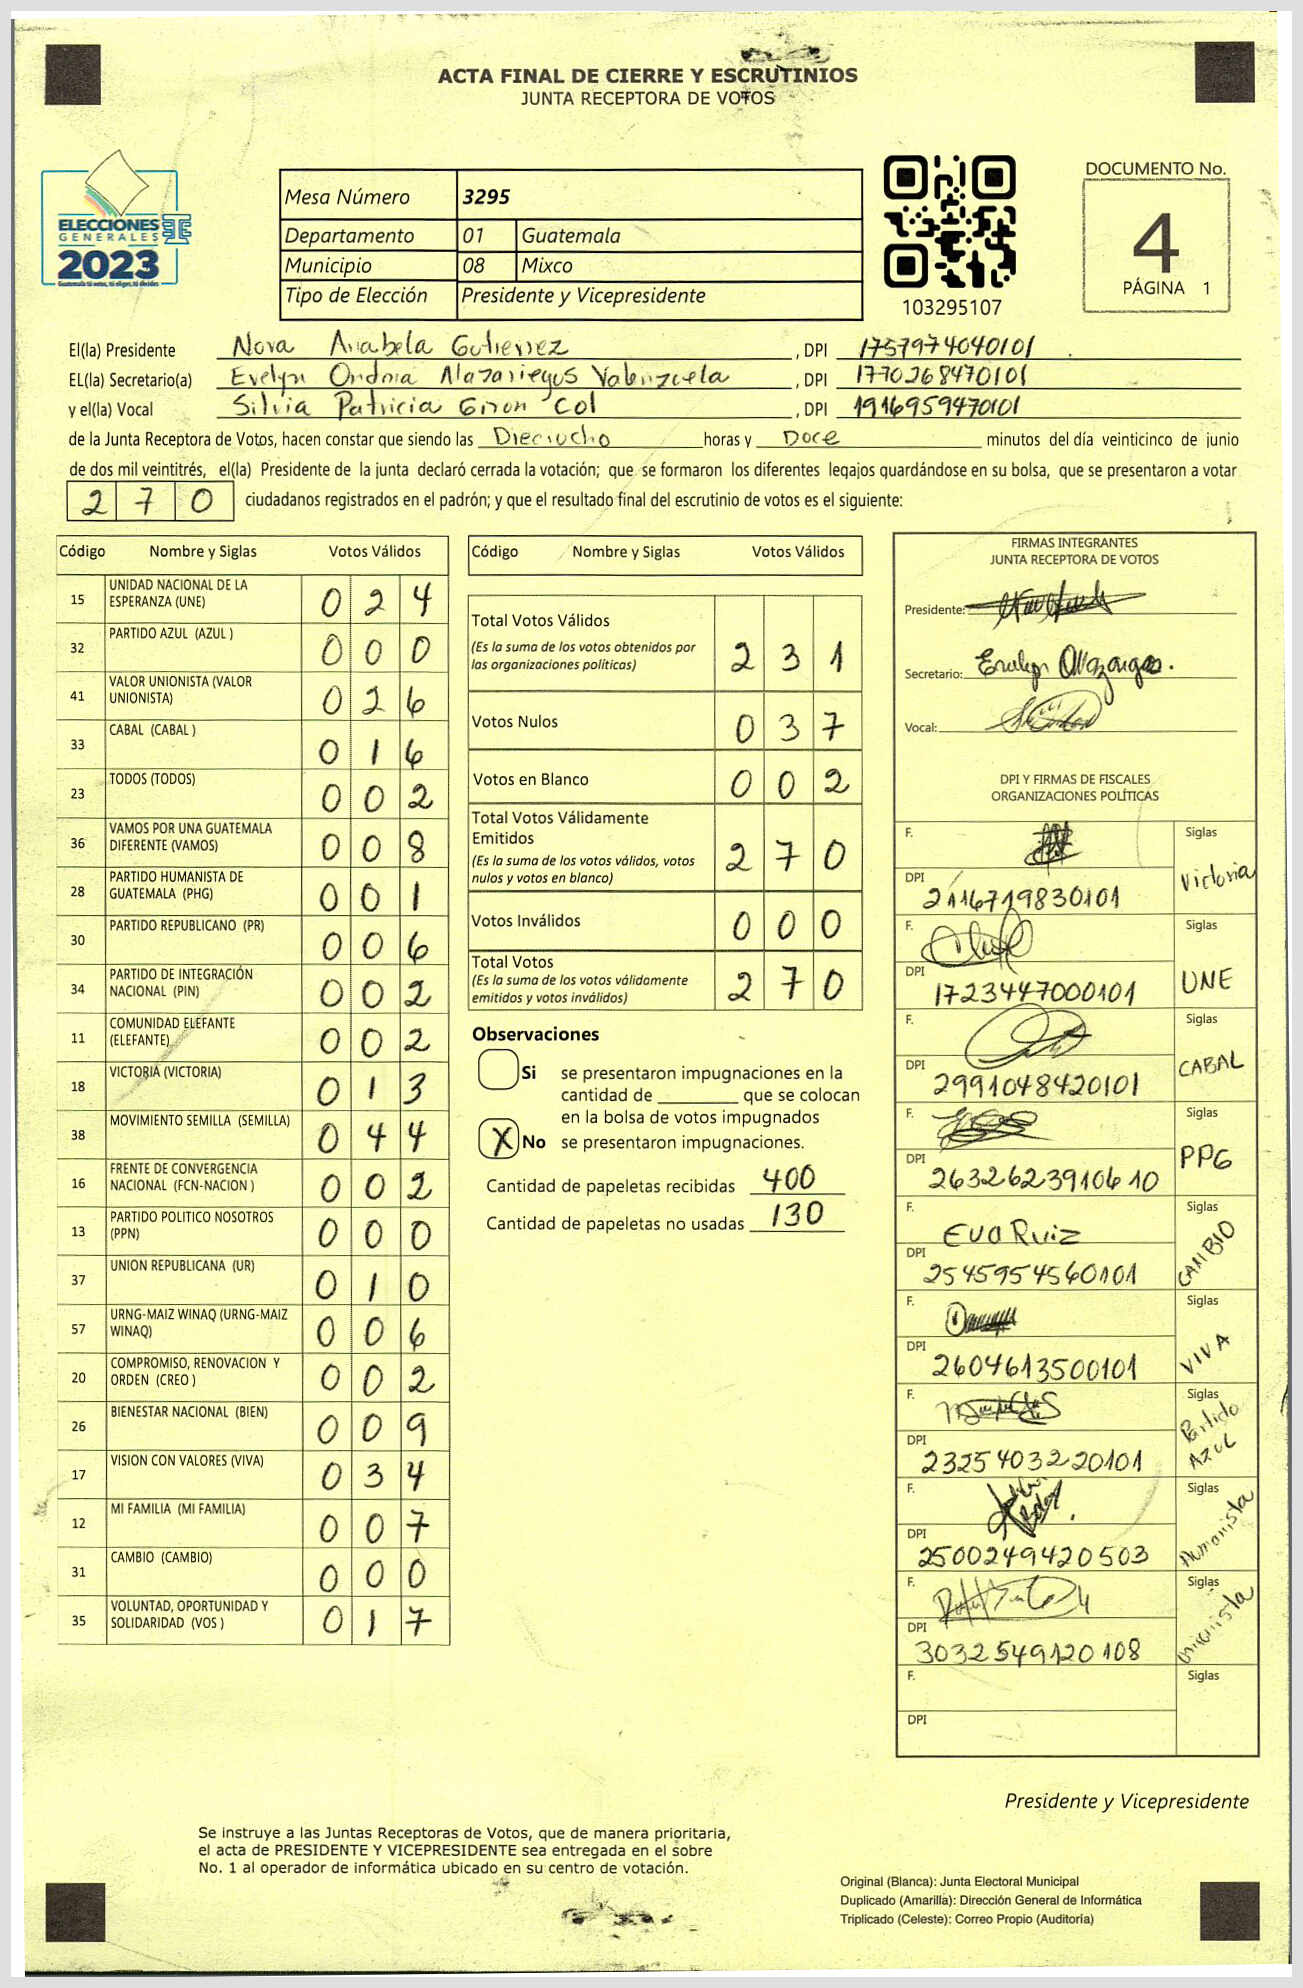 ACTA FINAL DE CIERRE Y ESCRUTINIOS
JUNTA RECEPTORA DE VOTOS
ELECCIONES
GENERALES
2023
Guatemala tú votas, tú eliges, tú decides
Mesa Número 3295
Departamento 01 Guatemala
Municipio 08 Mixco
Tipo de Elección Presidente y Vicepresidente
103295107
DOCUMENTO No.
4
PÁGINA 1
El(la) Presidente Nora Anabela Gutierrez , DPI 1757974040101
EL(la) Secretario(a) Evelyn Ondina Mazariegos Valenzuela , DPI 1770268470101
y el(la) Vocal Silvia Patricia Giron Col , DPI 1916959470101
de la Junta Receptora de Votos, hacen constar que siendo las Dieciocho horas y Doce minutos del día veinticinco de junio
de dos mil veintitrés, el(la) Presidente de la junta declaró cerrada la votación; que se formaron los diferentes legajos guardándose en su bolsa, que se presentaron a votar
270 ciudadanos registrados en el padrón; y que el resultado final del escrutinio de votos es el siguiente:
Código Nombre y Siglas Votos Válidos
15 UNIDAD NACIONAL DE LA ESPERANZA (UNE) 024
32 PARTIDO AZUL (AZUL ) 000
41 VALOR UNIONISTA (VALOR UNIONISTA) 026
33 CABAL (CABAL ) 016
23 TODOS (TODOS) 002
36 VAMOS POR UNA GUATEMALA DIFERENTE (VAMOS) 008
28 PARTIDO HUMANISTA DE GUATEMALA (PHG) 001
30 PARTIDO REPUBLICANO (PR) 006
34 PARTIDO DE INTEGRACIÓN NACIONAL (PIN) 002
11 COMUNIDAD ELEFANTE (ELEFANTE) 002
18 VICTORIA (VICTORIA) 013
38 MOVIMIENTO SEMILLA (SEMILLA) 044
16 FRENTE DE CONVERGENCIA NACIONAL (FCN-NACION ) 002
13 PARTIDO POLITICO NOSOTROS (PPN) 000
37 UNION REPUBLICANA (UR) 010
57 URNG-MAIZ WINAQ (URNG-MAIZ WINAQ) 006
20 COMPROMISO, RENOVACION Y ORDEN (CREO ) 002
26 BIENESTAR NACIONAL (BIEN) 009
17 VISION CON VALORES (VIVA) 034
12 MI FAMILIA (MI FAMILIA) 007
31 CAMBIO (CAMBIO) 000
35 VOLUNTAD, OPORTUNIDAD Y SOLIDARIDAD (VOS ) 017
Código Nombre y Siglas Votos Válidos
Total Votos Válidos
(Es la suma de los votos obtenidos por
las organizaciones políticas) 231
Votos Nulos 037
Votos en Blanco 002
Total Votos Válidamente
Emitidos
(Es la suma de los votos válidos, votos
nulos y votos en blanco) 270
Votos Inválidos 000
Total Votos
(Es la suma de los votos válidamente
emitidos y votos inválidos) 270
Observaciones
Si se presentaron impugnaciones en la
cantidad de ________ que se colocan
en la bolsa de votos impugnados
X No se presentaron impugnaciones.
Cantidad de papeletas recibidas 400
Cantidad de papeletas no usadas 130
FIRMAS INTEGRANTES
JUNTA RECEPTORA DE VOTOS
Presidente:
Secretario:
Vocal:
DPI Y FIRMAS DE FISCALES
ORGANIZACIONES POLÍTICAS
F. Siglas
DPI 2116719830101 Victoria
F. Siglas
DPI 1723447000101 UNE
F. Siglas
DPI 2991048420101 CABAL
F. Siglas
DPI 2632623910610 PPG
F. Eva Ruiz Siglas
DPI 2545954560101 CAMBIO
F. Siglas
DPI 2604613500101 VIVA
F. Siglas
DPI 2325403220101 Partido AZUL
F. Siglas
DPI 2500249420503 Humanista
F. Siglas
DPI 3032549120108 Unionista
F. Siglas
DPI
Presidente y Vicepresidente
Se instruye a las Juntas Receptoras de Votos, que de manera prioritaria,
el acta de PRESIDENTE Y VICEPRESIDENTE sea entregada en el sobre
No. 1 al operador de informática ubicado en su centro de votación.
Original (Blanca): Junta Electoral Municipal
Duplicado (Amarilla): Dirección General de Informática
Triplicado (Celeste): Correo Propio (Auditoría)